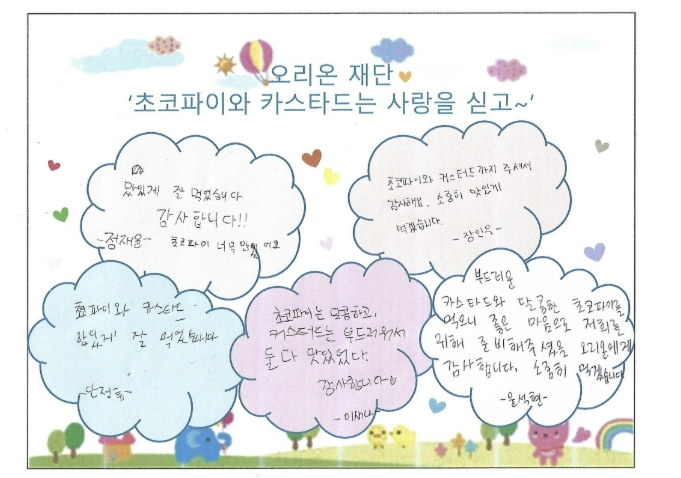 오리온 재단
‘초코파이와 카스타드는 사랑을 싣고~’
맛있게 잘 먹었습니다
감사합니다!!
초코파이 너무 맛있어요
-정재율-
초코파이와 커스터드까지 주셔서
감사해요. 소중히 맛있게
먹겠습니다.
- 장인욱 -
초코파이와 카스타드
맛있게 잘 먹었습니다
초코파이는 달콤하고,
커스터드는 부드러워서
둘다 맛있었다.
감사합니다
부드러운
카스타드와 달콤한 초코파이를
먹으니 좋은 마음으로 저희를
위해 준비해주셨을 오리온에게
감사합니다. 소중히 먹겠습니다
-윤석현-